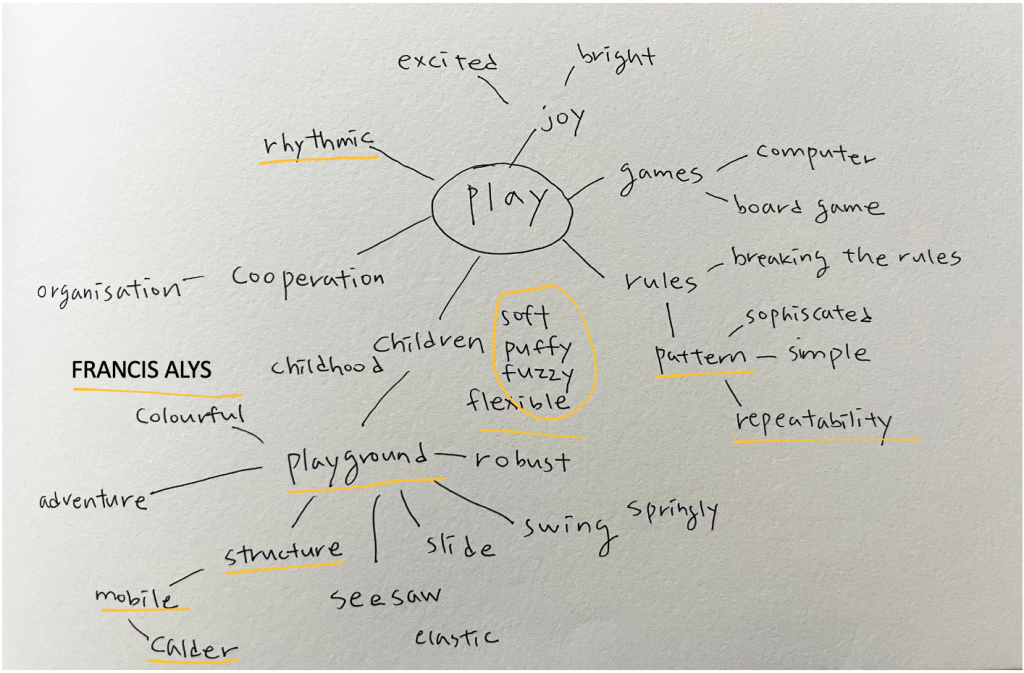 excited
bright
joy
rhythmic
play
games
computer
board game
cooperation
organisation
rules
breaking the rules
sophiscated
pattern
simple
repeatability
children
childhood
soft
puffy
fuzzy
flexible
FRANCIS ALYS
colourful
playground
robust
adventure
structure
slide
swing
springly
mobile
seesaw
calder
elastic